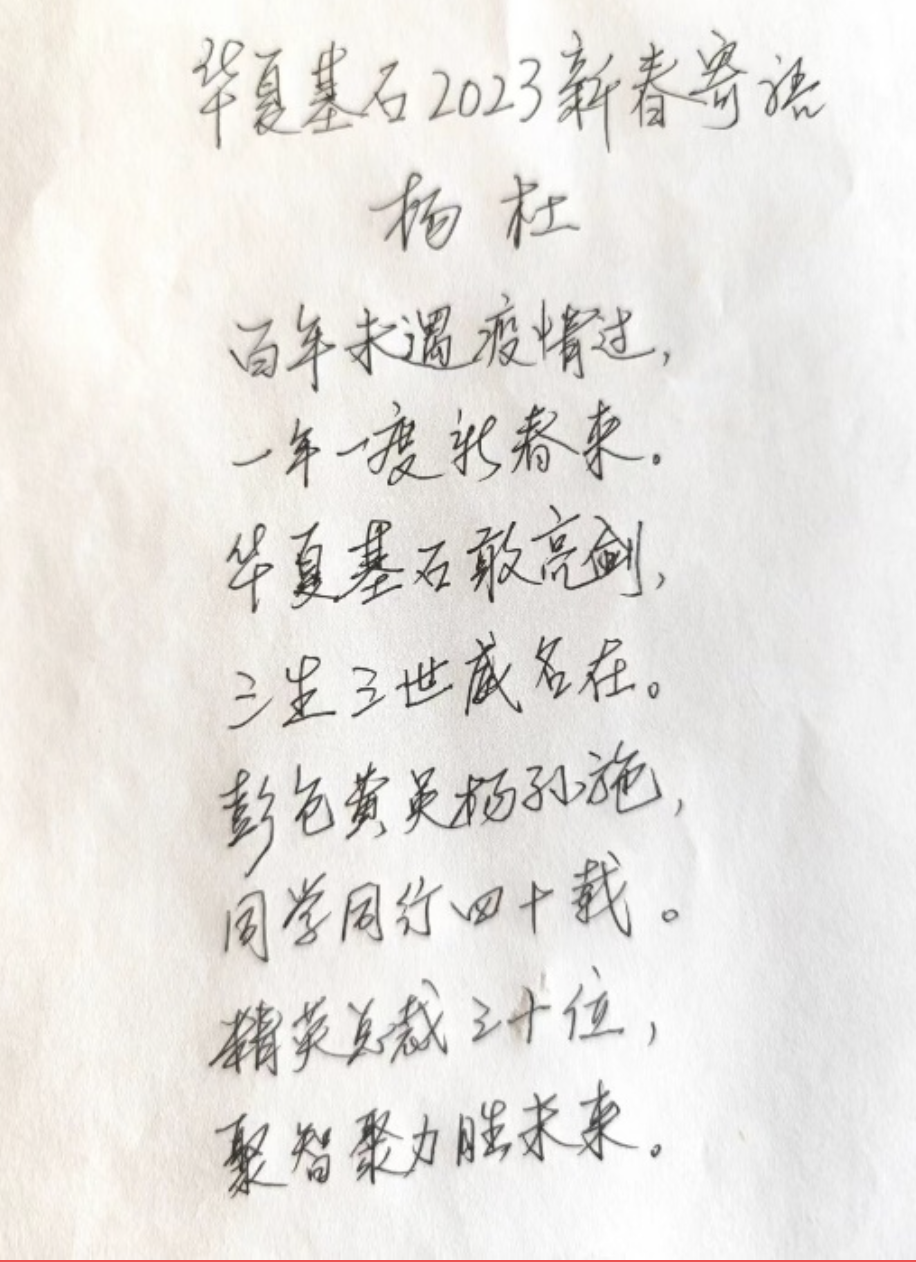 华夏基石2023新春寄语
杨杜
百年未遇疫情过，
一年一度新春来。
华夏基石敢亮剑，
三生三世威名在。
彭包黄吴杨孙施，
同学同行四十载。
精英总裁三十位，
聚智聚力胜未来。